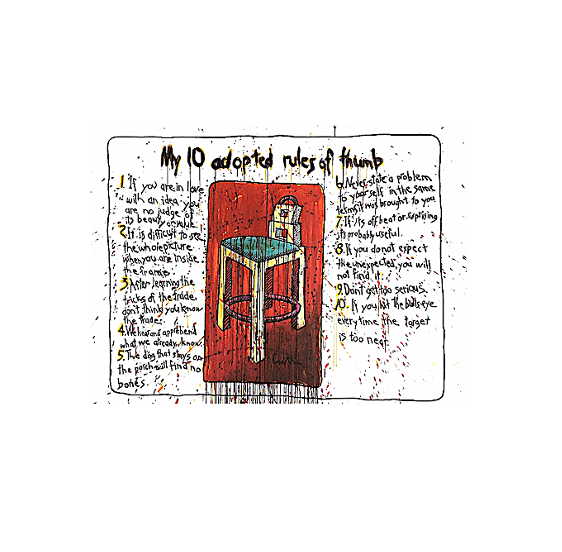 My 10 adopted rules of thumb
1. If you are in love
with an idea, you
are no judge of
its beauty or value.
2. It is difficult to see
the whole picture
when you are inside
the frame.
3. After learning the
tricks of the trade
don't think you know
the trade.
4. We hear and apprehend
what we already know.
5. The dog that stays on
the porch will find no
bones.
6. Never state a problem
to yourself in the same
terms it was brought to you.
7. If its offbeat or surprising
its probably useful.
8. If you do not expect
the unexpected, you will
not find it.
9. Don't get too serious.
10. If you hit the bullseye
every time, the target
is too near.